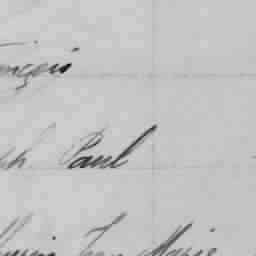 ançois
ph Paul
Jean Marie